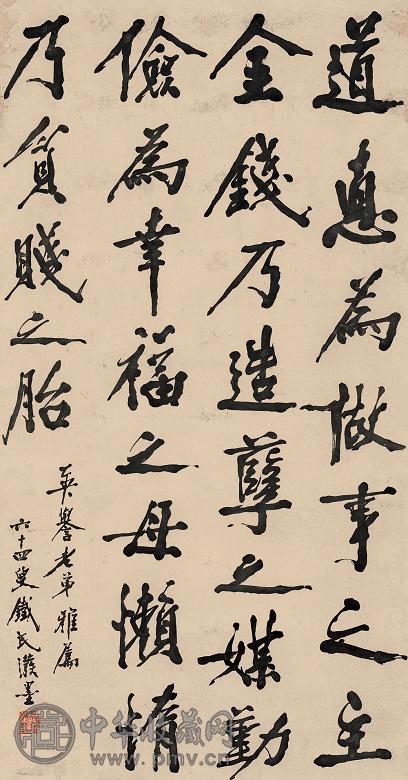 道惪為做事之主
金錢乃造孽之媒勤
儉為幸福之母懶惰
乃貧賤之胎
英譽老弟雅屬
六十四叟鐵民潑墨
中华收藏网
www.pmv.cn